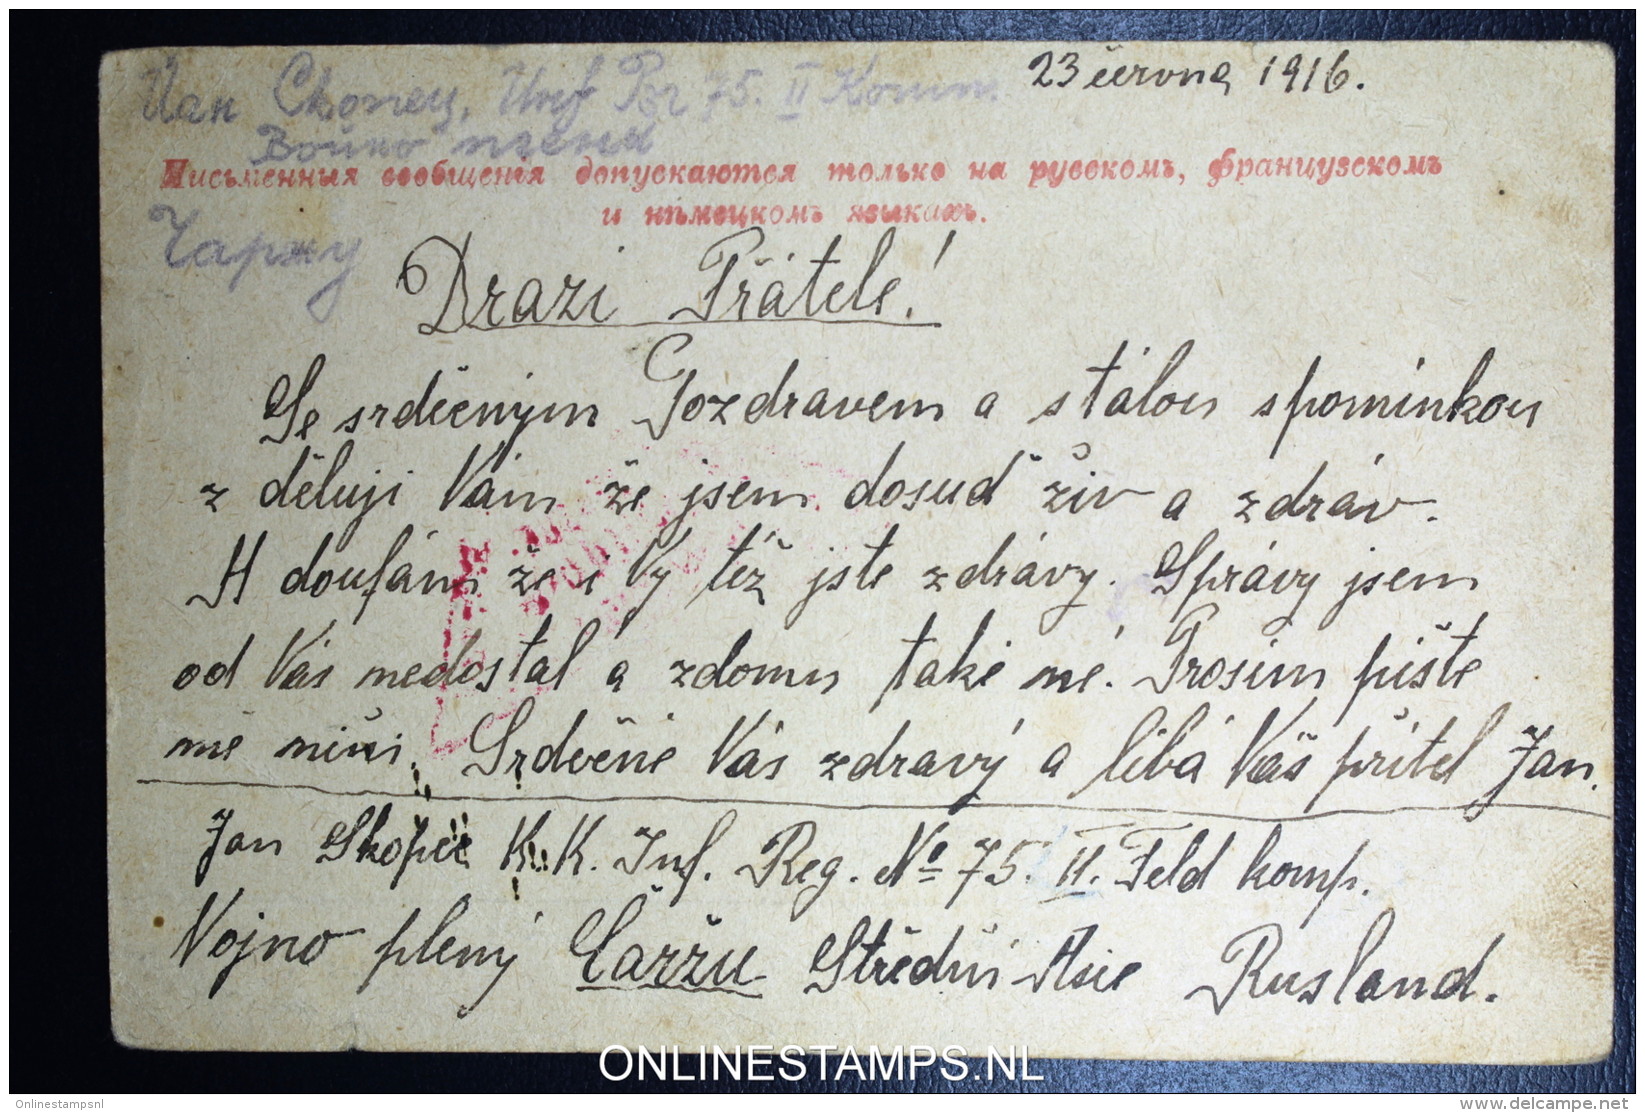 23 června 1916.
Иан Skopец, Инф Рег 75. II Комп.
Војно плени
Письменныя сообщенія допускаются только на русскомъ, французскомъ
и нѣмецкомъ языкахъ.
Чаржу
Drazi Přátelé!
Se srdečným Pozdravem a stálou spomínkou
z děluji Vám že jsem dosud živ a zdráv.
A doufám že i Vy též jste zdrávy. Správy jsem
od Vás nedostal a zdomu také né. Prosím pište
mě
Srdečně Vás zdravý a líbá Váš přítel Jan.
Jan Skopec K.K. Inf. Reg. No 75. II. Feld komp.
Vojno plený Čaržu Středni Asie Rusland.
ONLINESTAMPS.NL
Onlinestampsnl
www.delcampe.net